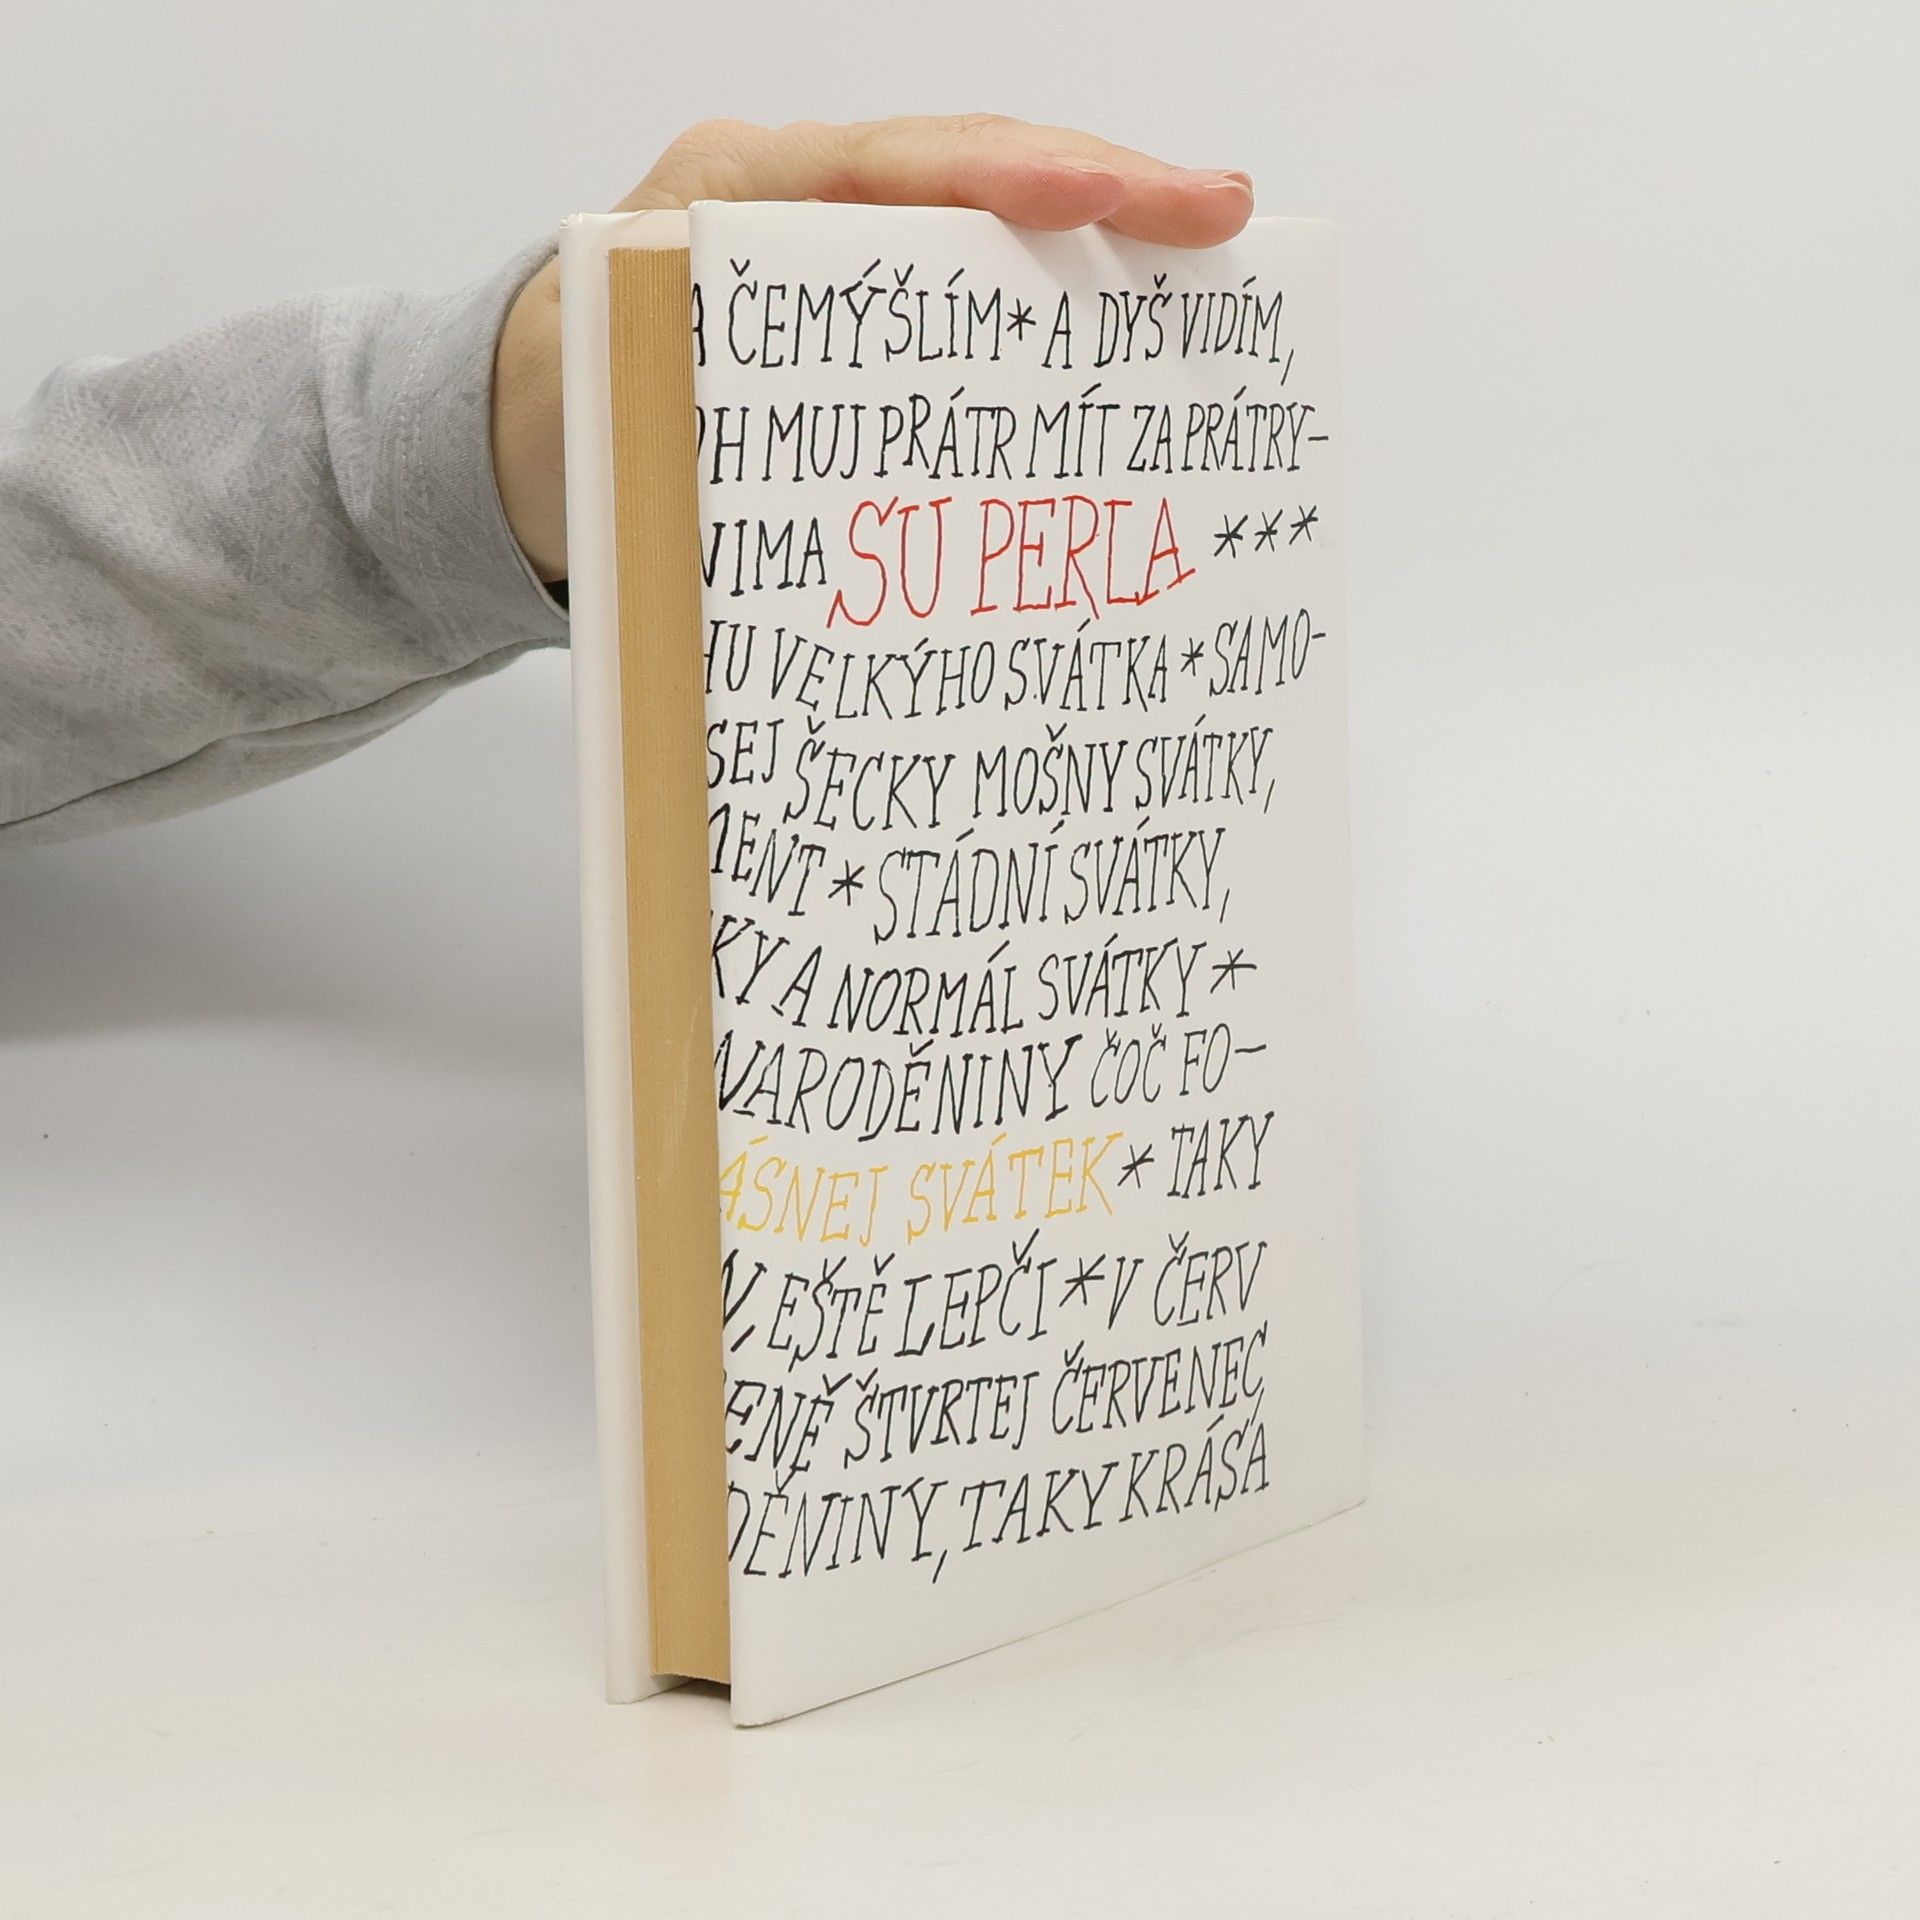 A ČEMÝŠLÍM * A DYŠ VIDÍM,
H MUJ PRÁTR MÍT ZA PRÁTRY-
NIMA SU PERLA ***
HU VELKÝHO SVÁTKA * SAMO-
SEJ ŠECKY MOŠNY SVÁTKY,
MENT * STÁDNÍ SVÁTKY,
KY A NORMÁL SVÁTKY *
NARODĚNINY ČOČ FO-
ÁSNEJ SVÁTEK * TAKY
N, EŠTĚ LEPČI * V ČERV
ENĚ ŠTVRTEJ ČERVENEC,
DĚNINY, TAKY KRÁSA